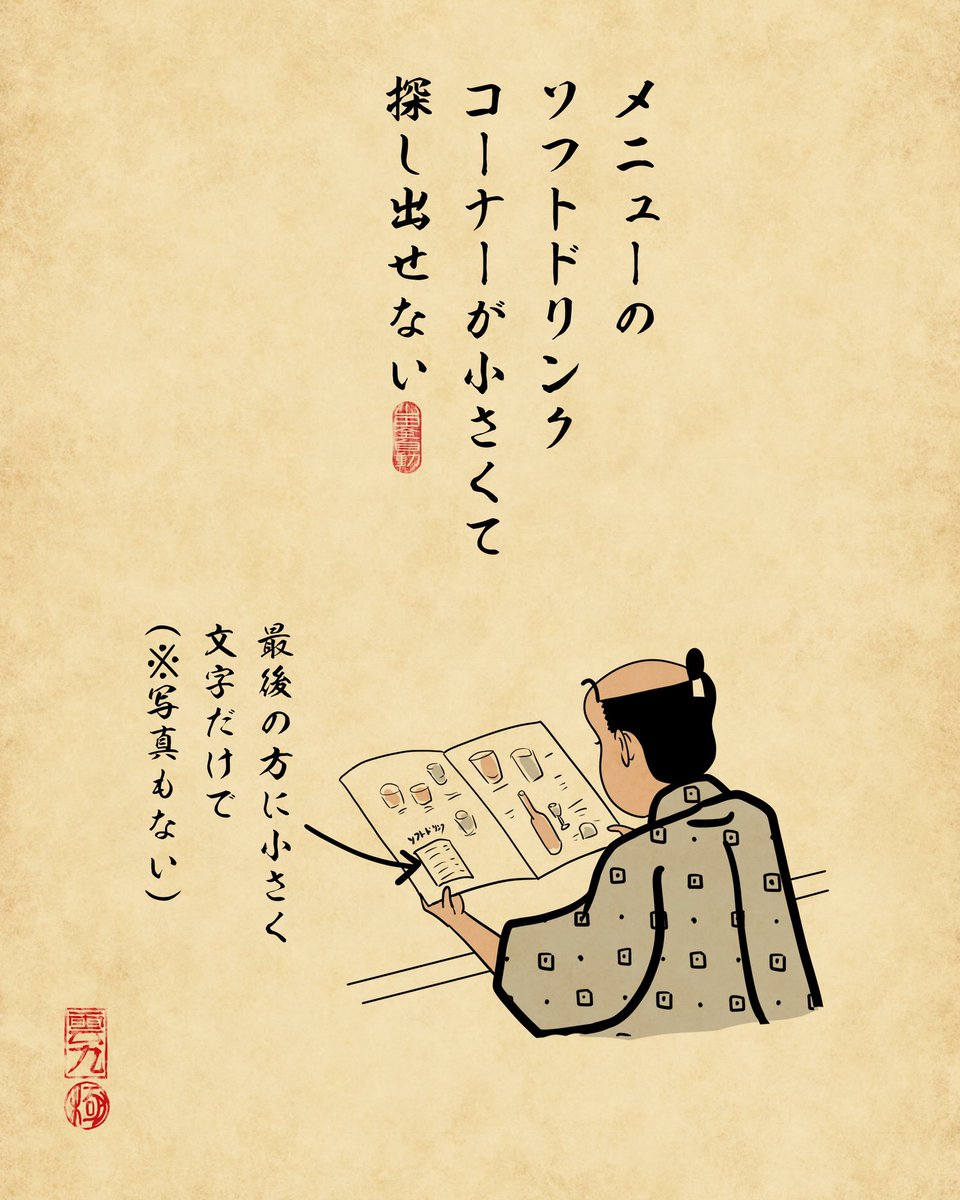 メニューの
ソフトドリンク
コーナーが小さくて
探し出せない
最後の方に小さく
文字だけで
(※写真もない)
ソフトドリンク